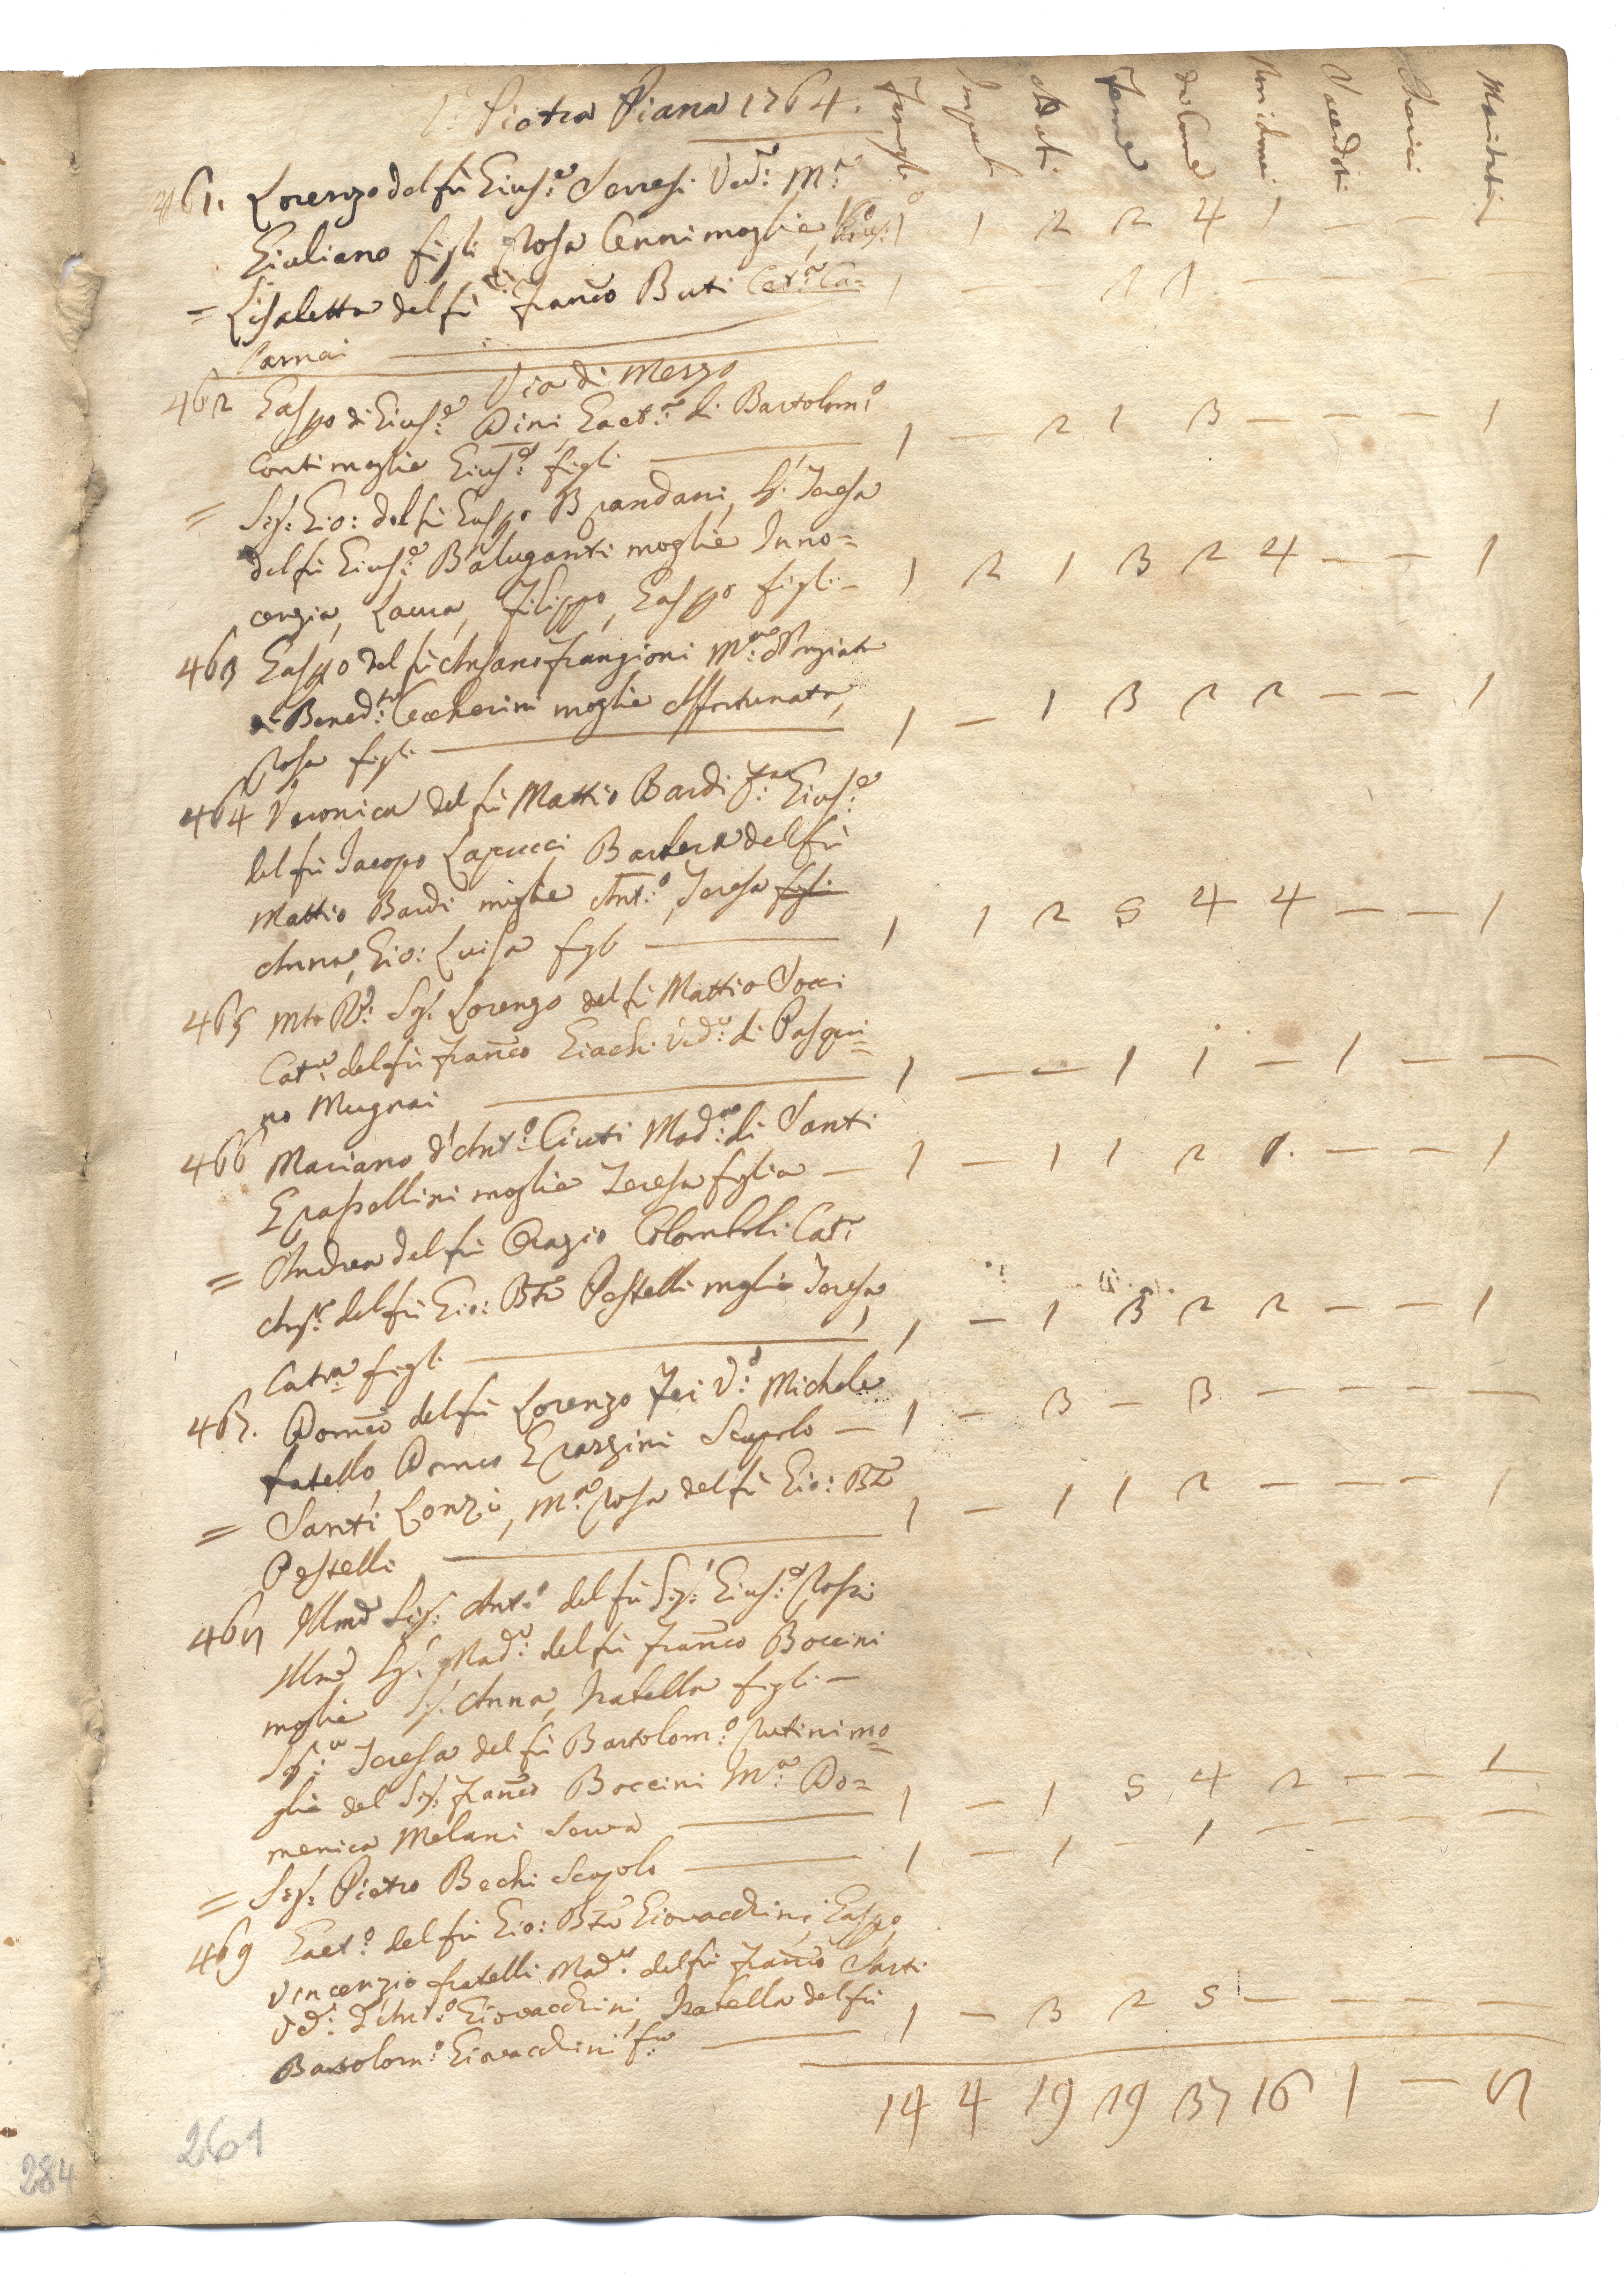 Pietra Piana 1764.
Famigl. Impub. Adulti Femē da Com. Non Com. Sacerdoti Cherici Maritati
461. Lorenzo del fù Gius:e Serresi Ved: M:a
Giuliano figli Rosa Cenni moglie 1 1 2 2 4 1 — —
= Lisabetta del fù Franco Buti Cat:a Ca= 1 — — 1 1 — — —
larnai
Via di Mezzo
462 Gaspo di Gius:e Dini Gaet:a di Bartolom:o
Conti moglie Gius:e figli 1 — 2 1 3 — — — 1
= Sig: Gio: del fù Gaspo Brandani, Sig: Teresa
del fù Gius:e Baluganti moglie Inno=
cenzia, Laura, Filippo, Gaspo figli — 1 2 1 3 2 4 — — 1
463 Gaspo del fù Ansano Frangioni M:a Anziata
di Bened:to Ceccherini moglie Affortunata,
Rosa figli 1 — 1 3 2 2 — — 1
464 Veronica del fù Mattio Bardi Gius:e
del fù Iacopo Lapucci Barbera del fù
Mattio Bardi moglie Ant:o, Teresa figli
Anna, Gio: Luisa figli 1 1 2 5 4 4 — — 1
465 Mto Rd: Sig: Lorenzo del fù Mattio Socci
Cat:a del fù Franco Giachi Vd:a di Pasqui=
no Mugnai 1 — — 1 1 — 1 — —
466 Mariano d'Ant:o Ciuti Mad:na di Santi
Grassellini moglie Teresa figlia — 1 — 1 1 2 1. — — 1
= Andrea del fù Orazio Colomboli Cat:
Ang:a del fù Gio: Bta Pestelli moglie Teresa,
Catra figli 1 — 1 3 2 2 — — 1
467. Domco del fù Lorenzo Fei V:o Michele
fratello Domco Grazzini Scapolo — 1 — 3 — 3 — — — —
= Santi Lonzi, M:a Rosa del fù Gio: Bta
Pestelli 1 — 1 1 2 — — — 1
468 Illmo Sig: Ant:o del fù Sig: Gius:e Rossi
Illma Sig: Mad:a del fù Franco Boccini
moglie Sig: Anna, Isabella figli —
Sig:ra Teresa del fù Bartolom:o Rutini mo=
glie del Sig: Franco Boccini M:a Do=
menica Melani Serva 1 — 1 5 4 2 — — 1
= Sig: Pietro Bechi Scapolo 1 — 1 — 1 — — — —
469 Gaet:o del fù Gio: Bta Giovacchini, Gaspo,
Vincenzio fratelli Mad:a del fù Franco Sarti
Vd: d'Ant:o Giovacchini, Isabella del fù
Bartolom:o Giovacchini 1 — 3 2 5 — — — —
14 4 19 19 37 16 1 — 8
261
284